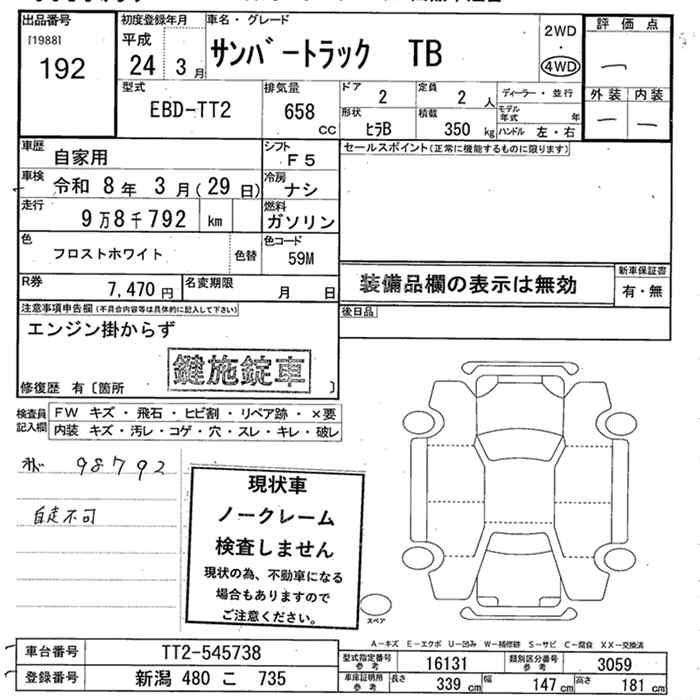 出品番号
[1988]
192
初度登録年月
平成
24 3月
車名・グレード
サンバートラック TB
2WD
・
4WD
評価点
一
外装 内装
一 一
型式
EBD-TT2
排気量
658 cc
ドア
2
定員
2 人
形状
ヒラB
積載
350 kg
ディーラー・並行
モデル年式 年
ハンドル 左・右
車歴
自家用
シフト
F5
車検
令和 8年 3月(29日)
冷房
ナシ
走行
9万8千792 km
燃料
ガソリン
色
フロストホワイト
色替
色コード
59M
R券
7,470円
名変期限
月 日
セールスポイント(正常に機能するものに限ります)
装備品欄の表示は無効
新車保証書
有・無
後日品
注意事項申告欄(不具合内容等は具体的に記入して下さい)
エンジン掛からず
鍵施錠車
修復歴 有〔箇所 〕
検査員記入欄
FW キズ・飛石・ヒビ割・リペア跡・×要
内装 キズ・汚レ・コゲ・穴・スレ・キレ・破レ
98792
自走不可
現状車
ノークレーム
検査しません
現状の為、不動車になる
場合もありますので
ご注意ください。
スペア
A-キズ E-エクボ U-凹み W-補修跡 S-サビ C-腐食 XX-交換済
車台番号
TT2-545738
登録番号
新潟 480 こ 735
型式指定番号参考
16131
類別区分番号参考
3059
車庫証明用参考
長さ 339 cm
幅 147 cm
高さ 181 cm